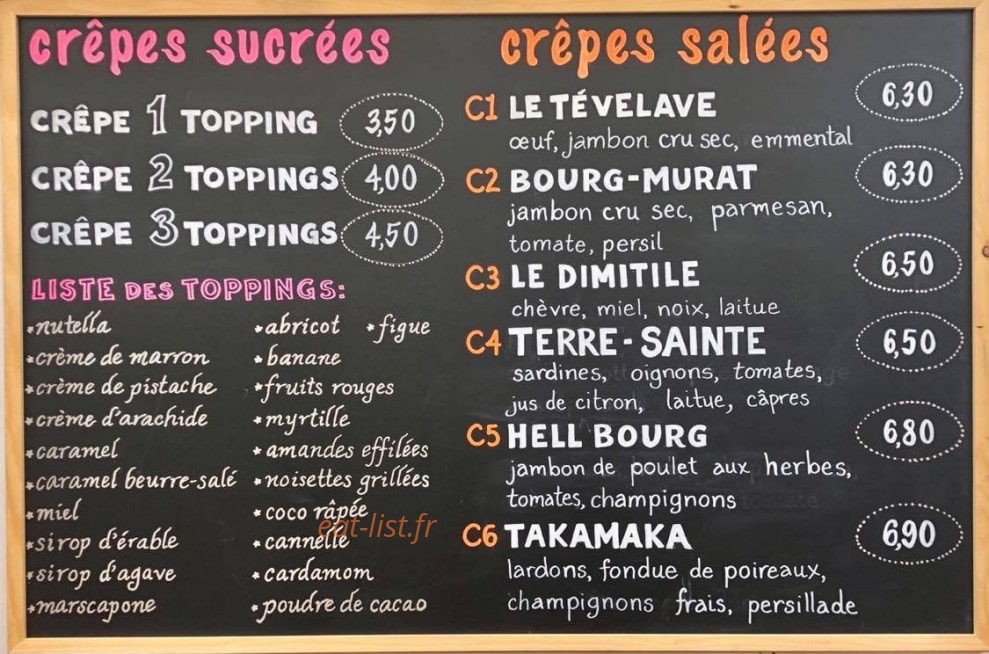 crêpes sucrées
CRÊPE 1 TOPPING 3,50
CRÊPE 2 TOPPINGS 4,00
CRÊPE 3 TOPPINGS 4,50
LISTE DES TOPPINGS:
*nutella
*crème de marron
*crème de pistache
*crème d'arachide
*caramel
*caramel beurre-salé
*miel
*sirop d'érable
*sirop d'agave
*marscapone
*abricot *figue
*banane
*fruits rouges
*myrtille
*amandes effilées
*noisettes grillées
*coco râpée
*cannelle
*cardamom
*poudre de cacao
crêpes salées
C1 LE TÉVELAVE 6,30
œuf, jambon cru sec, emmental
C2 BOURG-MURAT 6,30
jambon cru sec, parmesan,
tomate, persil
C3 LE DIMITILE 6,50
chèvre, miel, noix, laitue
C4 TERRE-SAINTE 6,50
sardines, oignons, tomates,
jus de citron, laitue, câpres
C5 HELL BOURG 6,80
jambon de poulet aux herbes,
tomates, champignons
C6 TAKAMAKA 6,90
lardons, fondue de poireaux,
champignons frais, persillade
eat-list.fr